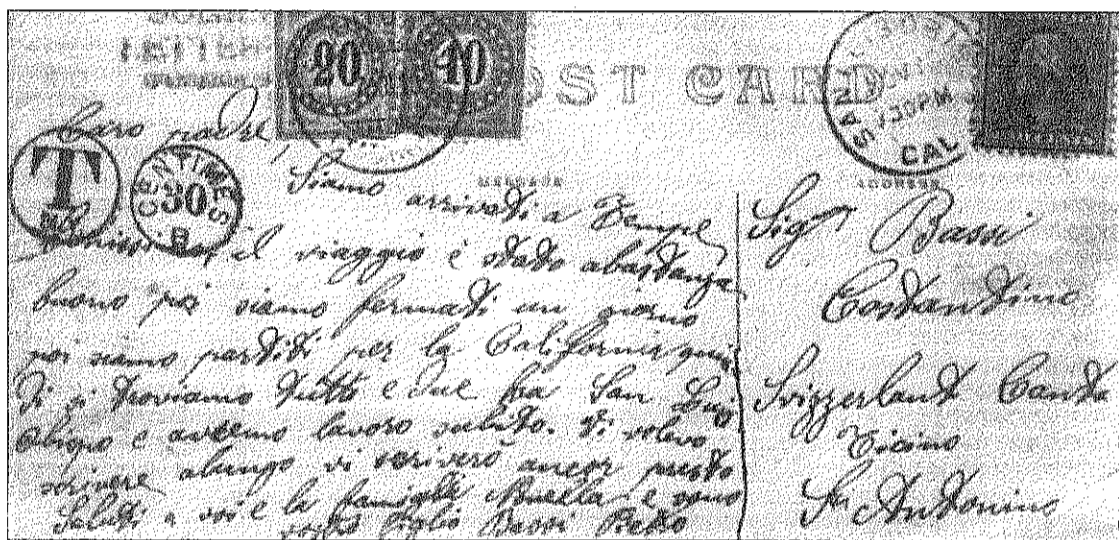 20 10
POST CARD
SAN
30 PM
CAL
T
CENTIMES
30
B
MESSAGE
ADDRESS
Caro padre,
Siamo arrivati a Tempe
il viaggio è stato abastanza
buono poi siamo fermati un giorno
poi siamo partiti per la California qui
di si troviamo tutti e due ha San Luis
Obispo e avremo lavoro subito. Vi volevo
scrivere alungo vi scriverò ancor presto
Saluti a voi e la famiglia e sono
vostro figlio Bassi
Sigr Bassi
Costantino
Svizzerland Canto
Ticino
St Antonino